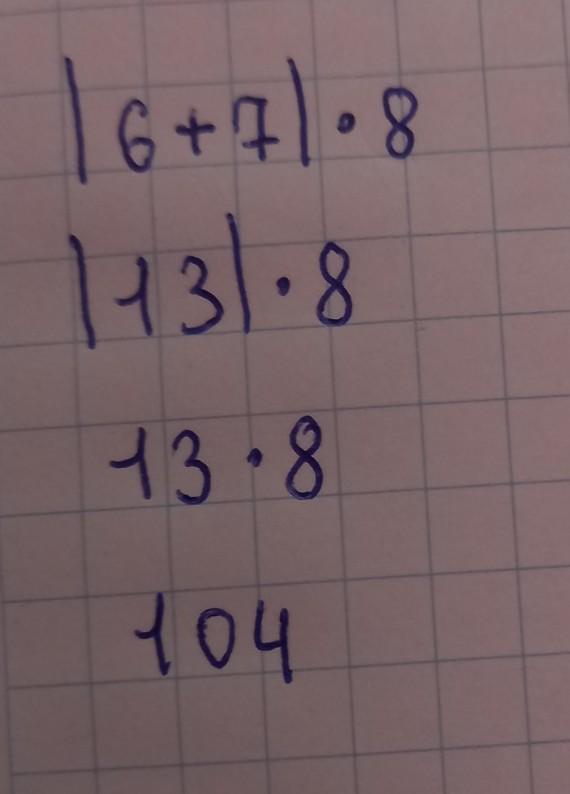 |6+7|·8
|13|·8
13·8
104